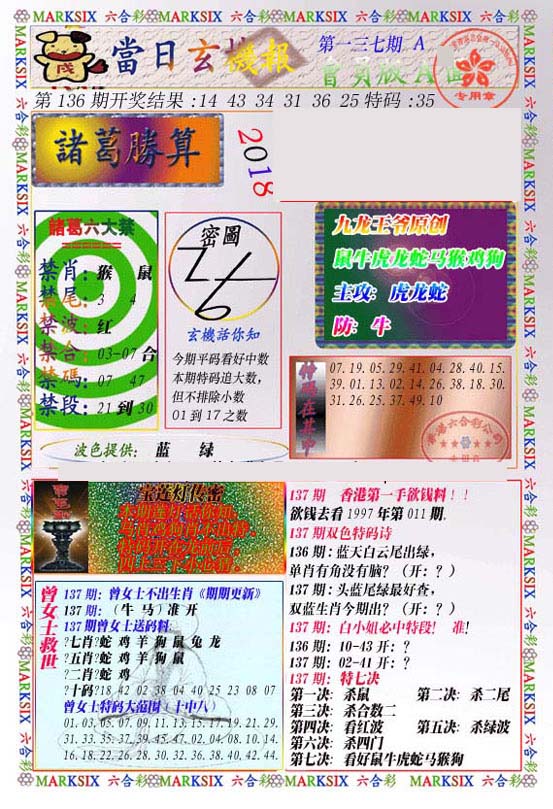 MARKSIX 六合彩 MARKSIX 六合彩 MARKSIX 六合彩 MARKSIX 六合彩
當日玄機報
第一三七期. A
會員版A面
专用章
第 136 期开奖结果 :14 43 34 31 36 25 特码 :35
諸葛勝算
2018
諸葛六大禁
禁肖: 猴 鼠
禁尾: 3 4
禁波: 红
禁合: 03-07 合
禁碼: 07 47
禁段: 21 到 30
密圖
玄機話你知
今期平码看好中数
本期特码追大数,
但不排除小数
01 到 17 之数
九龙王爷原创
鼠牛虎龙蛇马猴鸡狗
主攻: 虎龙蛇
防: 牛
特碼在其中
07. 19. 05. 29. 41. 04. 28. 40. 15.
39. 01. 13. 02. 14. 26. 38. 18. 30.
31. 26. 25. 37. 49. 10
香港六合彩公司
波色提供: 蓝 绿
宝莲灯传密
曾女士救世
137 期: 曾女士不出生肖《期期更新》
137 期: (牛 马) 准 开
137 期曾女士送码料:
?七肖?蛇 鸡 羊 狗 鼠 兔 龙
?五肖?蛇 鸡 羊 狗 鼠
?二肖?蛇 鸡
?十码?18 42 02 38 04 40 25 23 08 07
曾女士特码大范围 (十中八)
01. 03. 05. 07. 09. 11. 13. 15. 17. 19. 21. 29.
31. 33. 35. 37. 39. 45. 47. 02. 04. 08. 10. 14.
16. 18. 22. 26. 28. 30. 32. 36. 38. 40. 42. 44.
137 期 香港第一手欲钱料 ! !
欲钱去看 1997 年第 011 期.
137 期双色特码诗
136 期: 蓝天白云尾出绿,
单肖有角没有脑? (开: ?)
137 期: 头蓝尾绿最好查,
双蓝生肖今期出? (开: ?)
137 期: 白小姐必中特段! 准!
136 期: 10-43 开: ?
137 期: 02-41 开: ?
137 期: 特七决
第一决: 杀鼠 第二决: 杀二尾
第三决: 杀合数二
第四决: 看红波 第五决: 杀绿波
第六决: 杀四门
第七决: 看好鼠牛虎蛇马猴狗
MARKSIX 六合彩 MARKSIX 六合彩 MARKSIX 六合彩 MARKSIX 六合彩